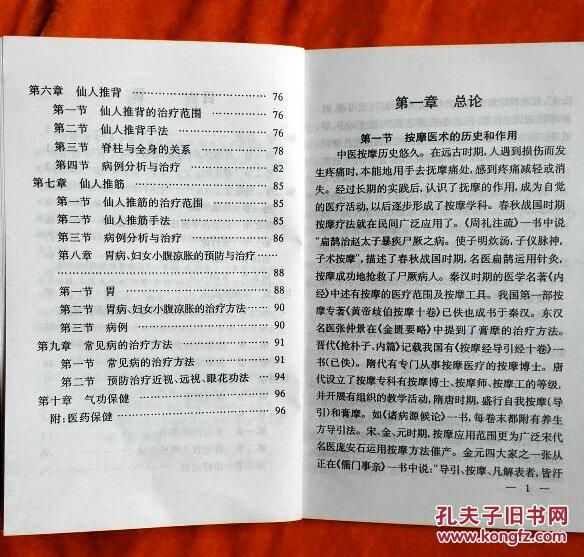 第六章 仙人推背 …………………… 76
第一节 仙人推背的治疗范围 …………… 76
第二节 仙人推背手法 …………………… 76
第三节 脊柱与全身的关系 …………… 78
第四节 病例分析与治疗 …………… 82
第七章 仙人推筋 …………………… 85
第一节 仙人推筋的治疗范围 …………… 85
第二节 仙人推筋手法 …………………… 85
第三节 病例分析与治疗 …………… 86
第八章 胃病、妇女小腹凉胀的预防与治疗……
…………………… 88
第一节 胃 …………………… 88
第二节 胃病、妇女小腹凉胀的治疗方法 …… 90
第三节 病例 …………………… 90
第九章 常见病的治疗方法 …………… 91
第一节 常见病的治疗方法 …………… 91
第二节 预防治疗近视、远视、眼花功法 …… 94
第十章 气功保健 …………………… 96
附:医药保健 …………………… 96
第一章 总论
第一节 按摩医术的历史和作用
中医按摩历史悠久。在远古时期,人遇到损伤而发
生疼痛时,本能地用手去抚摩痛处,感到疼痛减轻或消
失。经过长期的实践后,认识了抚摩的作用,成为自觉
的医疗活动,以后逐步形成了按摩学科。春秋战国时期
按摩疗法就在民间广泛应用了。《周礼注疏》一书中说
“扁鹊治赵太子暴疾尸厥之病。使子明炊汤,子仪脉神,
子术按摩”,描述了春秋战国时期,名医扁鹊运用针灸,
按摩成功地抢救了尸厥病人。秦汉时期的医学名著《内
经》中述有按摩的医疗范围及按摩工具。我国第一部按
摩专著《黄帝歧伯按摩十卷》已佚也成书于秦汉。东汉
名医张仲景在《金匮要略》中提到了膏摩的治疗方法。
晋代《抢朴子、内篇》记载我国有《按摩经导引经十卷》一
书(已佚)。隋代有专门从事按摩医疗的按摩博士。唐
代设立了按摩专科有按摩博士、按摩师、按摩工的等级,
并开展有组织的教学活动,隋唐时期,盛行自我按摩(导
引)和膏摩。如《诸病源候论》一书,每卷末都附有养生
方导引法。宋、金、元时期,按摩应用范围更为广泛宋代
名医庞安石运用按摩方法催产。金元四大家之一张从
正在《儒门事亲》一书中说:“导引、按摩、凡解表者,皆汗
— 1 —
孔夫子旧书网